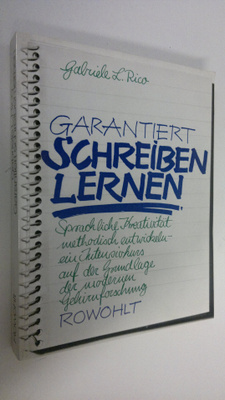 Gabriele L. Rico
GARANTIERT
SCHREIBEN
LERNEN
Sprachliche Kreativität
methodisch entwickeln-
ein Intensivkurs
auf der Grundlage
der modernen
Gehirnforschung
ROWOHLT